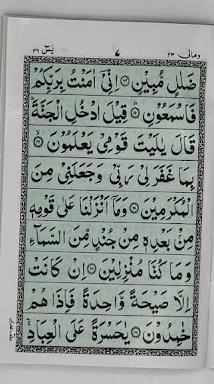 ومالی ۲۳ ۷ یٰسٓ ۳۶
ضَلٰلٍ مُّبِیْنٍ اِنِّیْۤ اٰمَنْتُ بِرَبِّكُمْ
فَاسْمَعُوْنِ قِیْلَ ادْخُلِ الْجَنَّةَ
قَالَ یٰلَیْتَ قَوْمِیْ یَعْلَمُوْنَ
بِمَا غَفَرَ لِیْ رَبِّیْ وَجَعَلَنِیْ مِنَ
الْمُكْرَمِیْنَ وَمَاۤ اَنْزَلْنَا عَلٰی قَوْمِهٖ
مِنْۢ بَعْدِهٖ مِنْ جُنْدٍ مِّنَ السَّمَآءِ
وَمَا كُنَّا مُنْزِلِیْنَ اِنْ كَانَتْ
اِلَّا صَیْحَةً وَّاحِدَةً فَاِذَا هُمْ
خٰمِدُوْنَ یٰحَسْرَةً عَلَی الْعِبَادِ